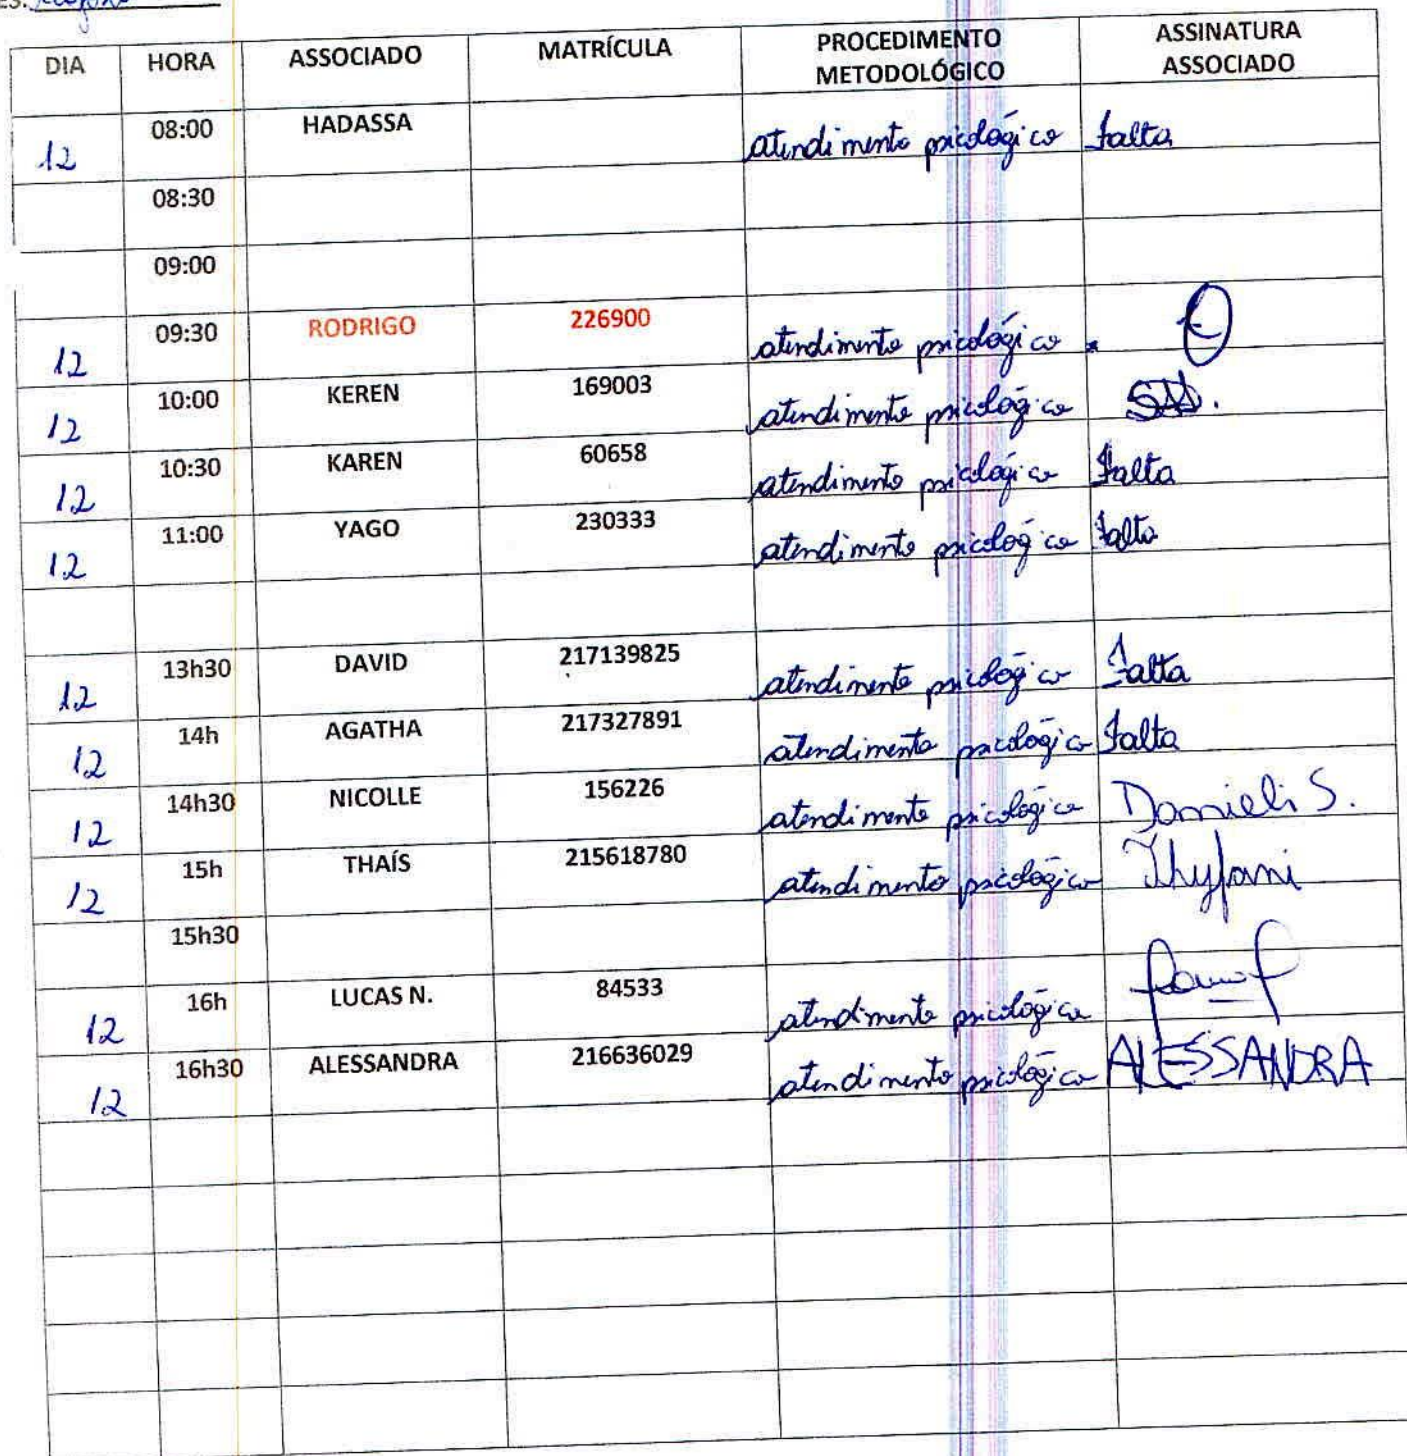 ES: Agosto
DIA HORA ASSOCIADO MATRÍCULA PROCEDIMENTO METODOLÓGICO ASSINATURA ASSOCIADO
12 08:00 HADASSA atendimento psicológico falta
08:30
09:00
12 09:30 RODRIGO 226900 atendimento psicológico
12 10:00 KEREN 169003 atendimento psicológico
12 10:30 KAREN 60658 atendimento psicológico falta
12 11:00 YAGO 230333 atendimento psicológico falta
12 13h30 DAVID 217139825 atendimento psicológico falta
12 14h AGATHA 217327891 atendimento psicológico falta
12 14h30 NICOLLE 156226 atendimento psicológico Danieli S.
12 15h THAÍS 215618780 atendimento psicológico Thyfani
15h30
12 16h LUCAS N. 84533 atendimento psicológico
12 16h30 ALESSANDRA 216636029 atendimento psicológico ALESSANDRA